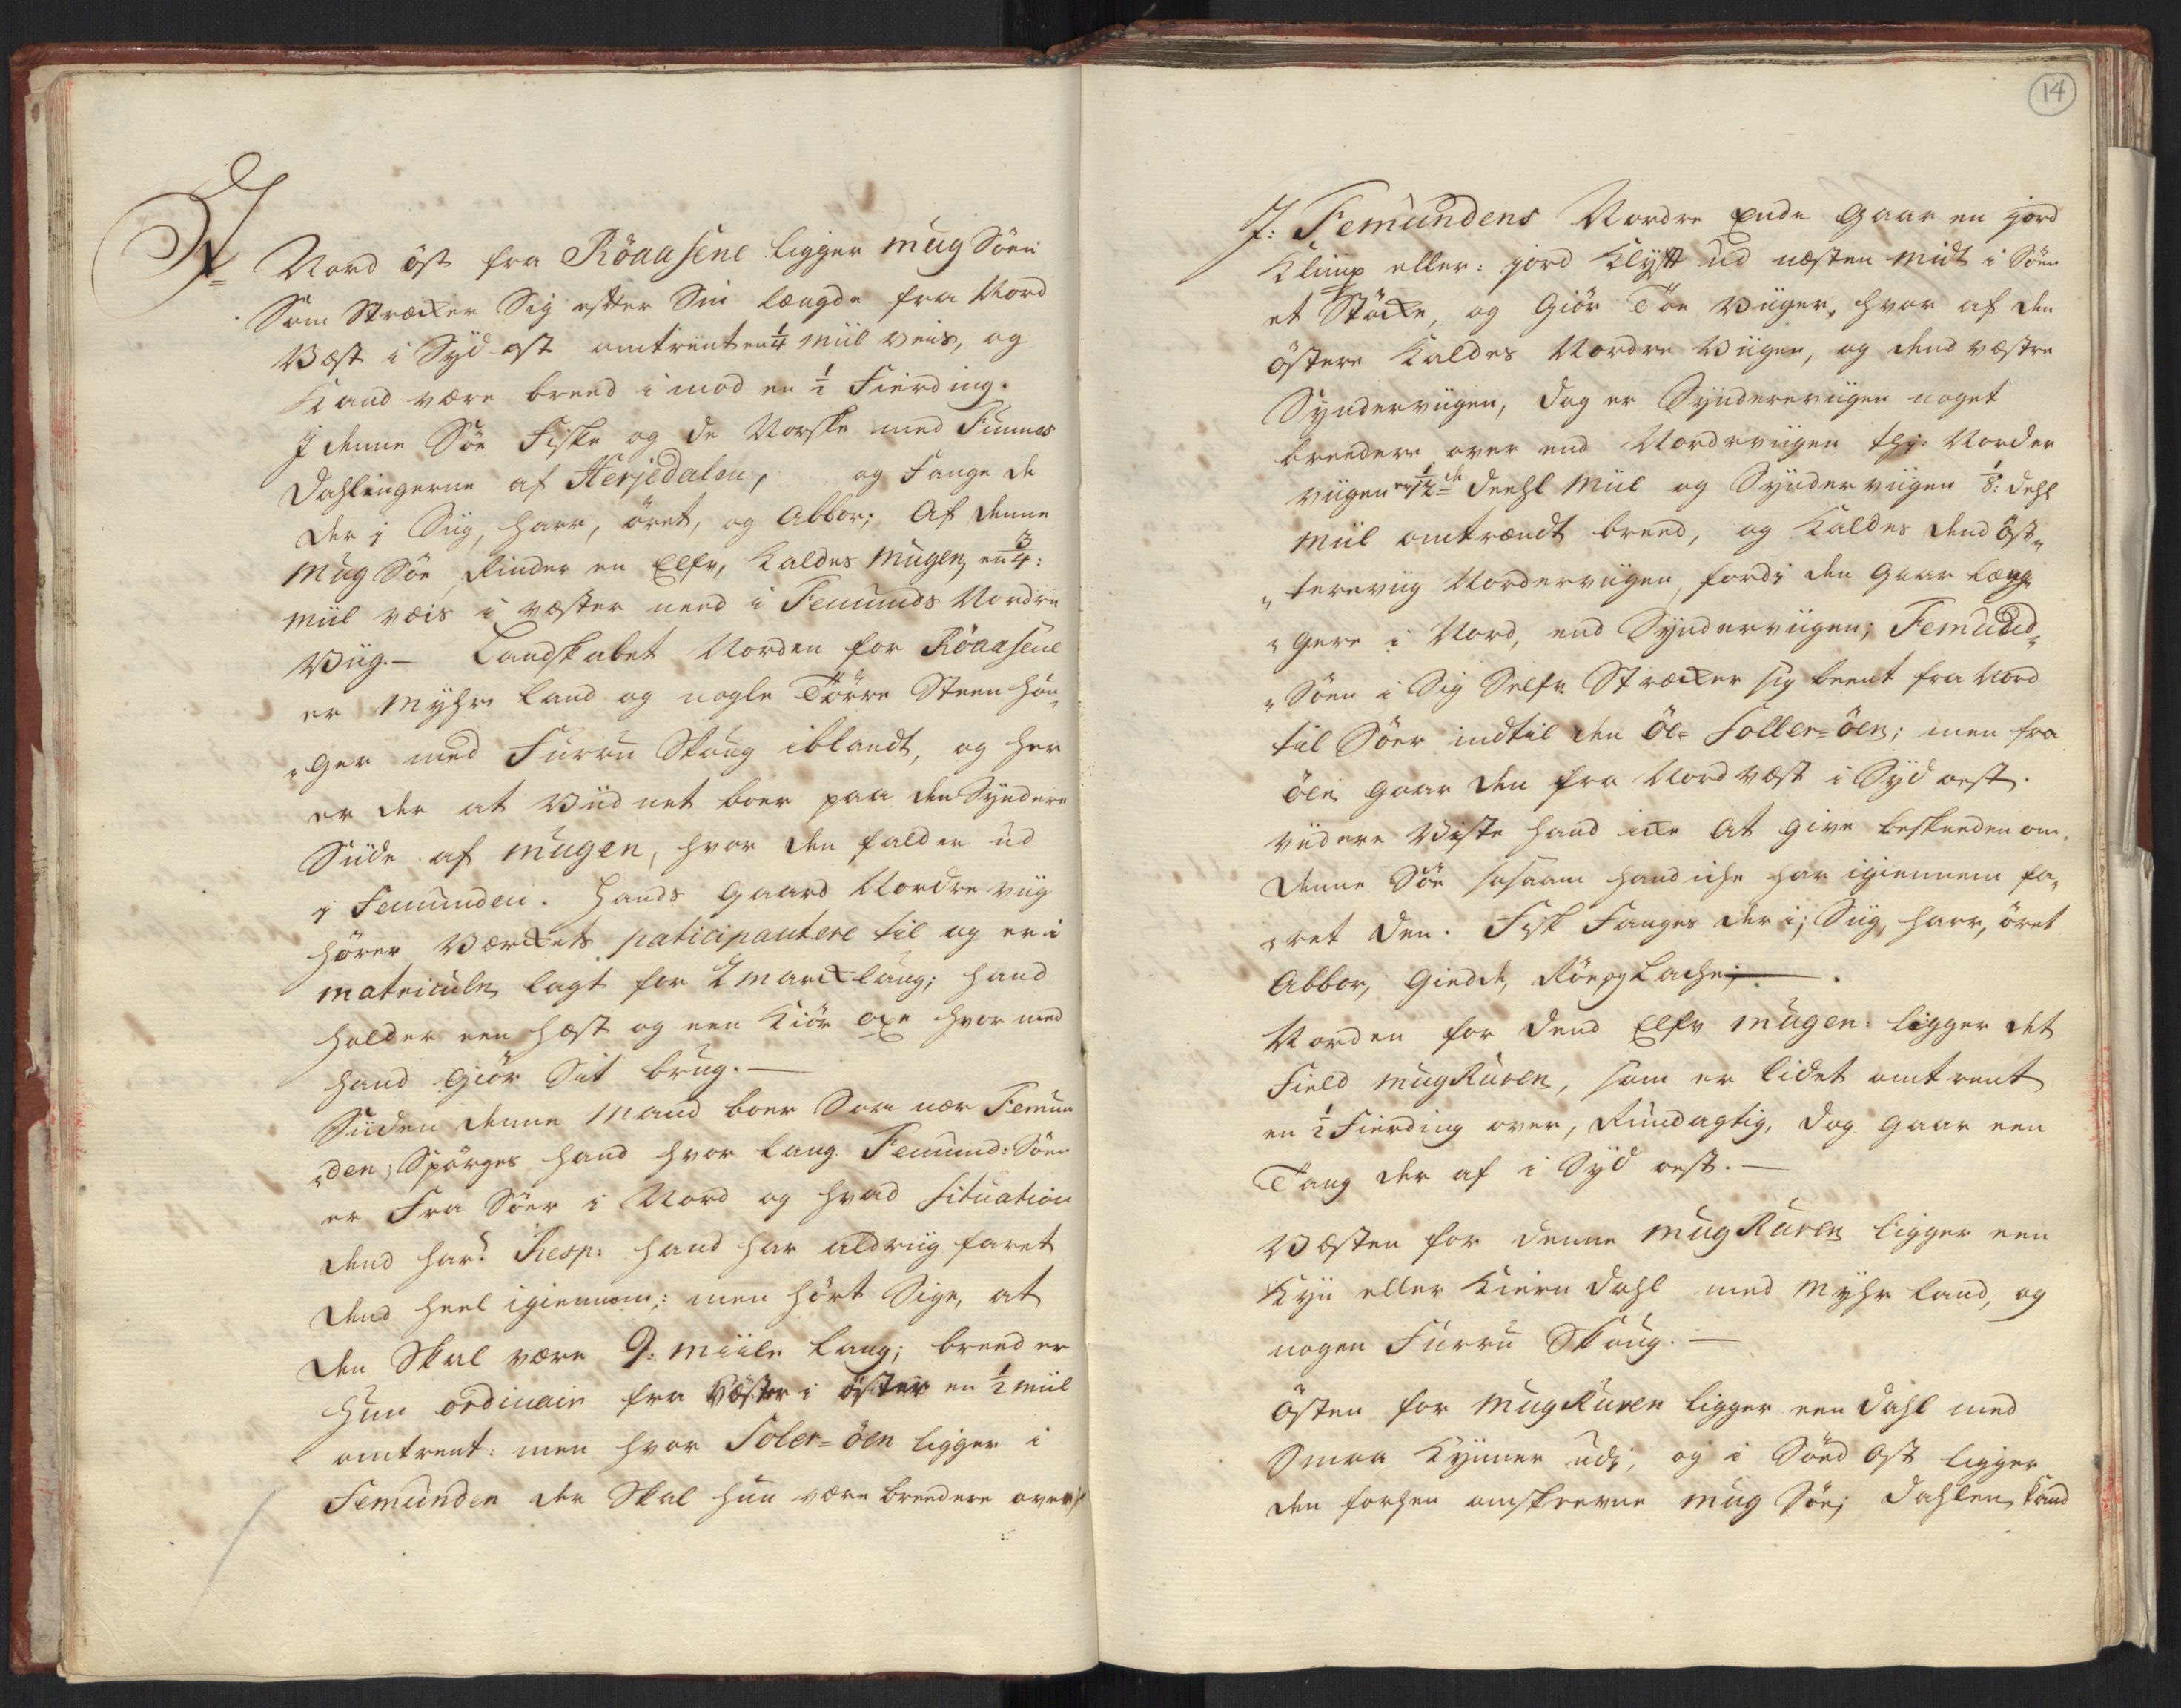 I Nord öst fra Röaasene ligger mug Söen
Som Stræcker Sig efter Sin længde fra Nord
Væst i Syd ost omtrent en 1/4 miil veis, og
Kand være breed i mod en 1/2 Fierding.
J denne Söe Fiske og de Norske med Funnes
Dahlingerne af Herjedalen, og Fange de
der i Siig, harr, öret, og Abbor; Af denne
mug Söe Rinder en Elfv, Kaldes mugen, en 3/4:
miil veis i væster need i Femunds Nordre
Viig.— Landskabet Norden for Röaasene
er Myhr land og nogle Törre Steen höu„
„ger med Furru Skoug iblandt, og her
er der at Viidnet boer paa den Syndere
Siide af mugen, hvor den falder ud
i Femunden. Hands Gaard Nordre viig
hörer Værckets paticipantere til og er i
matriculn lagt for 2 marcklaug; hand
holder een hæst og een Kiör oxe hvor med
hand giör Sit brug.—
Siiden denne Mand boer Saa nær Femun
„den; Spörges hand hvor lang Femund: Söen
er Fra Söer i Nord og hvad Situation
dend har? Resp: hand har aldriig faret
dend heel igiennem: men hört Sige, at
den Skal være 9: miile lang; breed er
hun ordinair fra Væster i öster en 1/2 miil
omtrent: men hvor Soler=öen ligger i
Femunden der Skal hun være breedere over
14
J: Femundens Nordre Ende gaar en jord
Klimp eller: jord Klyft ud næsten midt i Söen
et Stöcke, og Giör Toe Viiger, hvor af den
östere Kaldes Nordre Viigen, og dend væstre
Synderviigen, dog er Synderviigen noget
breedere over end Nordreviigen thj: Norder
viigen er 1/12de Deehl Miil og Synderviigen 1/8: dehl
Miil omtrændt breed, og Kaldes dend öst„
„tereviig Norderviigen, fordi den gaar læng„
„gere i Nord, end Synderviigen; Femund„
„Söen i Sig Selfv Stræcker sig beent fra Nord
til Söer indtil den Öe= Soller=öen; men fra
öen gaar den fra Nord væst i Syd oest.
Viidere Viste hand icke at give beskeeden om
denne Söe saasom hand iche har igiennem fa„
„ret den. Fisk Fanges der i; Siig, harr, öret
Abbor, giedde, Röe og Lache;—.
Norden for dend Elfv mugen ligger det
Field mugRuven, som er lidet omtrent
en 1/2 Fierding over, Rundagtig, dog gaar een
Tang der af i Syd oest.—
Væsten for denne mugRuven ligger een
Kyn eller Kiern Dahl med Myhr land, og
nogen Furru Skoug.—
Östen for mugRuven ligger een Dahl med
Smaa Kynner udi, og i Söed Ost ligger
den forhen omskrevne mug Söe; Dahlen kand